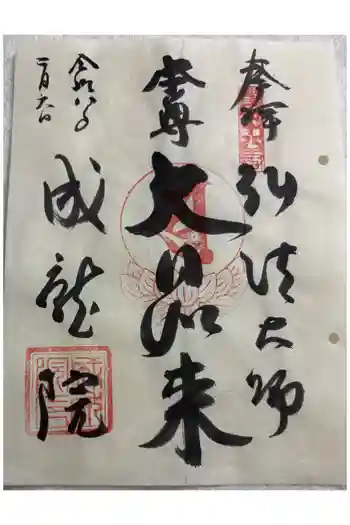 奉拝 弘法大師
本尊 大日如来
成龍院
令和八年
二月六日